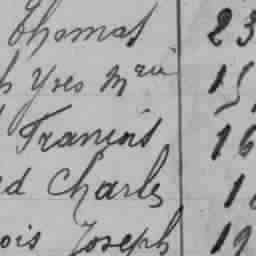 Thomas 23
Yves Mrie 15
Francois 16
ed Charles 1
ois Joseph 19